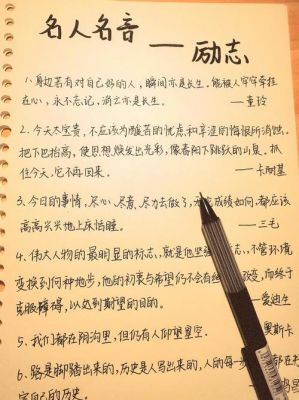 名人名音 — 励志
1、身边若有对自己好的人，瞬间亦是长生。能被人牢牢牵挂
在心，永不忘记，消云亦是长生。 —童铃
2、今天太宝贵，不应该为酸苦的忧虑和辛涩的悔恨所消蚀。
把下巴抬高，使思想焕发出光彩，像春阳下跳跃的山泉。抓
住今天，它不再回来。 —卡耐基
3、今日的事情，尽心、尽意、尽力去做了，成绩如何，都应该
高高兴兴地上床恬睡。 —三毛
4、伟大人物的最明显的标志，就是他坚 志，不管环境
变换到何种地步，他的初衷与希望仍不会有 改变，而终于
克服障碍，以达到期望的目的。 爱迪生
5、我们都在阴沟里，但仍有人仰望星空。 奥斯卡
6、路是脚踏出来的，历史是人写出来的，人的每一 都在
写自己的历史。